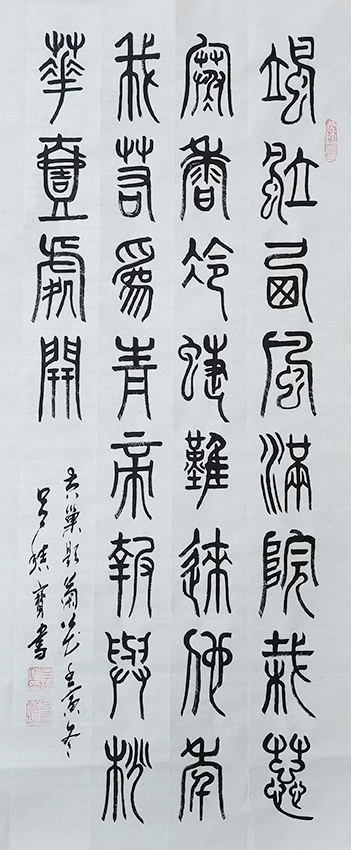 颯颯西風滿院栽蕊
寒香冷蝶難來他年
我若爲青帝報與桃
華壹處開
黃巢題菊花壬寅冬
呂寶書